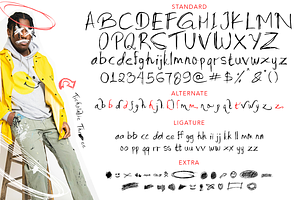 STANDARD
ABCDEFGHIJKLMN
OPQRSTUVWXYZ
abcdefghijklmnopqrstuvwxyz
0123456789@#$%^&*()
ALTERNATE
LIGATURE
aa bb cc dd ee ff gg hh ii jj kk ll mm nn
oo pp qq rr ss tt uu vv ww xx yy zz
EXTRA